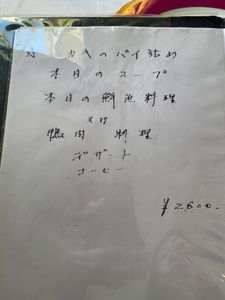 カキのパイ詰め
本日のスープ
本日の鮮魚料理
又は
鴨肉 料理
デザート
コーヒー
¥2,600.